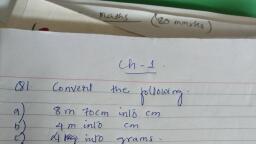 Maths (20 marks)
Ch-1.
Q1 Convert the following.
a) 8m 70cm into cm
b) 4m into cm
c) 4kg into grams.